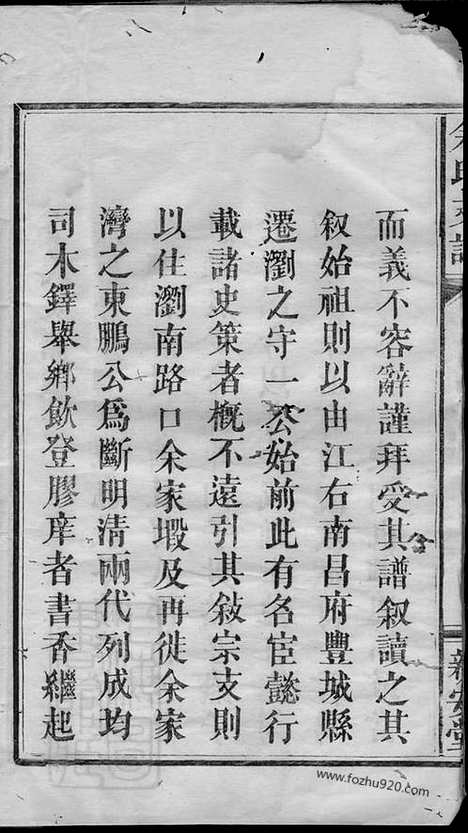 余氏支譜
新安堂
而義不容辭謹拜受其譜叙讀之其
叙始祖則以由江右南昌府豐城縣
遷瀏之守一公始前此有名宦懿行
載諸史策者概不遠引其敍宗支則
以住瀏南路口余家塅及再徙余家
灣之東鵬公爲斷明清兩代列成均
司木鐸舉鄉飲登膠庠者書香繼起
www.fozhu920.com